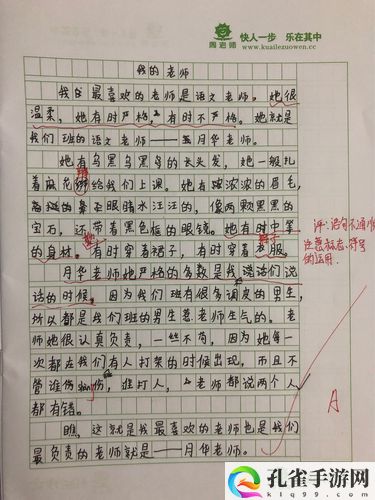 周老师 快人一步 乐在其中
www.kuailezuowen.cc
我的老师
我的最喜欢的老师是语文老师。她很
温柔，她有时严格，有时不严格。她就是
我们班的语文老师——王月华老师。
她有乌黑乌黑的长头发，她一般扎
着麻花辫给我们上课。她有浓浓的眉毛，
眼睛水汪汪的，像两颗黑黑的
宝石，还带着黑色框的眼镜。她有时中等
的身材。有时穿着裙子，有时穿着服。
月华老师她严格的多数是我们说
话的时候。因为我们班有很多调皮的男生，
所以都是我们班的男生惹老师生气的。老
师她很认真负责，一丝不苟，因为她每一
次都在我们有人打架的时候出现，而且不
管谁伤shang伤，谁打人，老师都说两个人
都有错。
瞧，这就是我最喜欢的老师也是我们
最负责的老师就是——月华老师。
评：语句不通顺
注意标点符号
的运用。
A
孔雀手游网
klqsocial.com